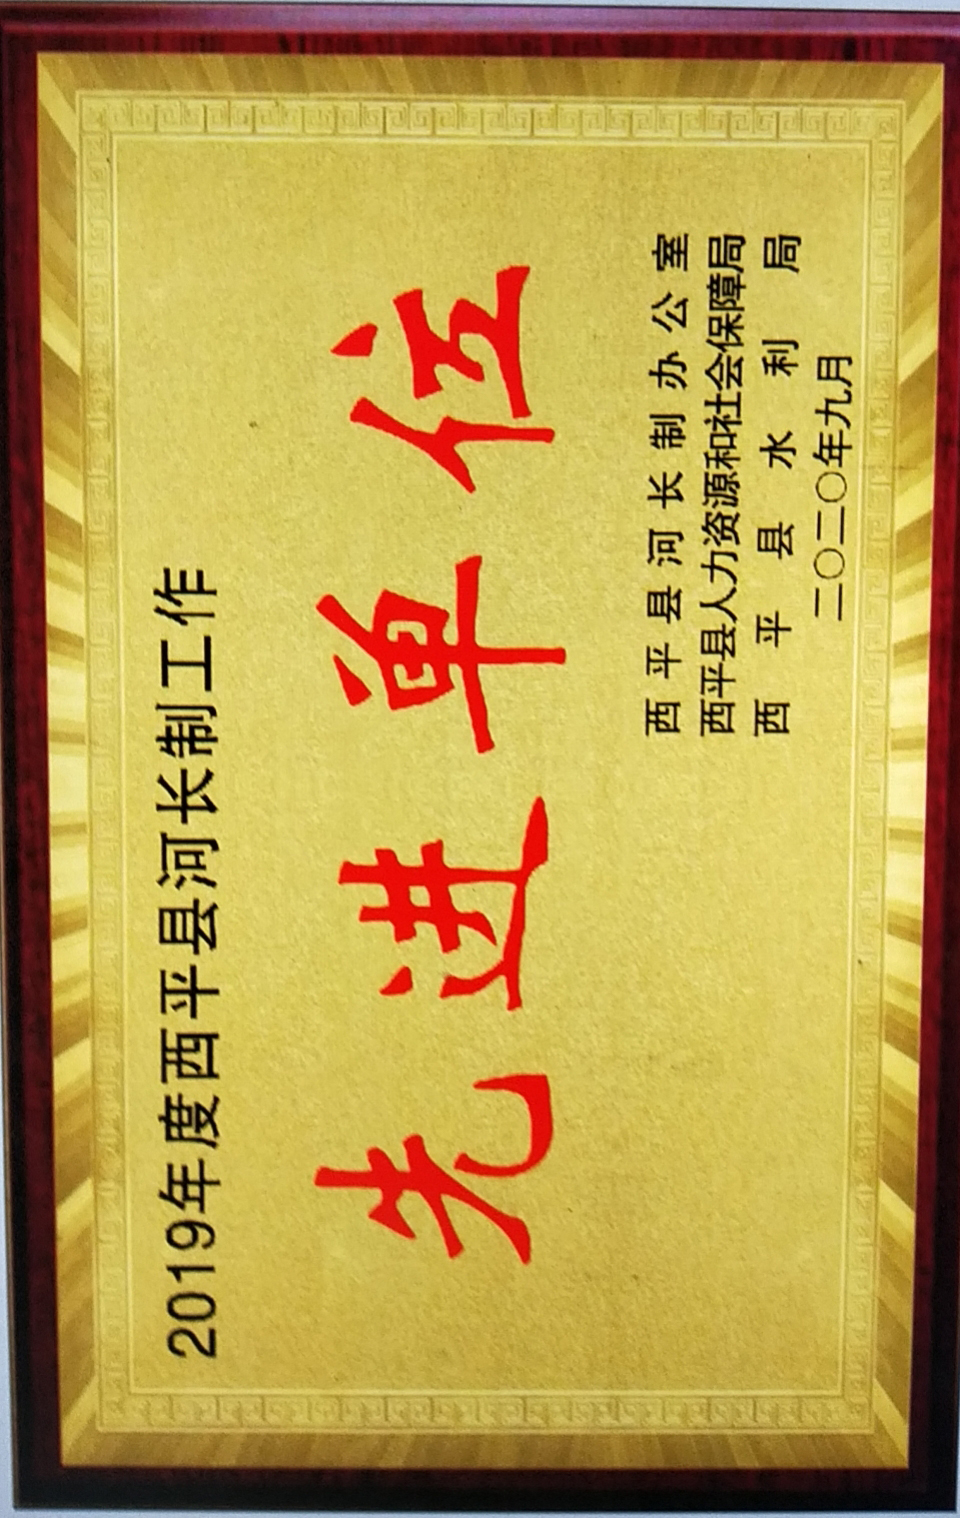 2019年度西平县河长制工作
先进单位
西平县河长制办公室
西平县人力资源和社会保障局
西平县水利局
二〇二〇年九月